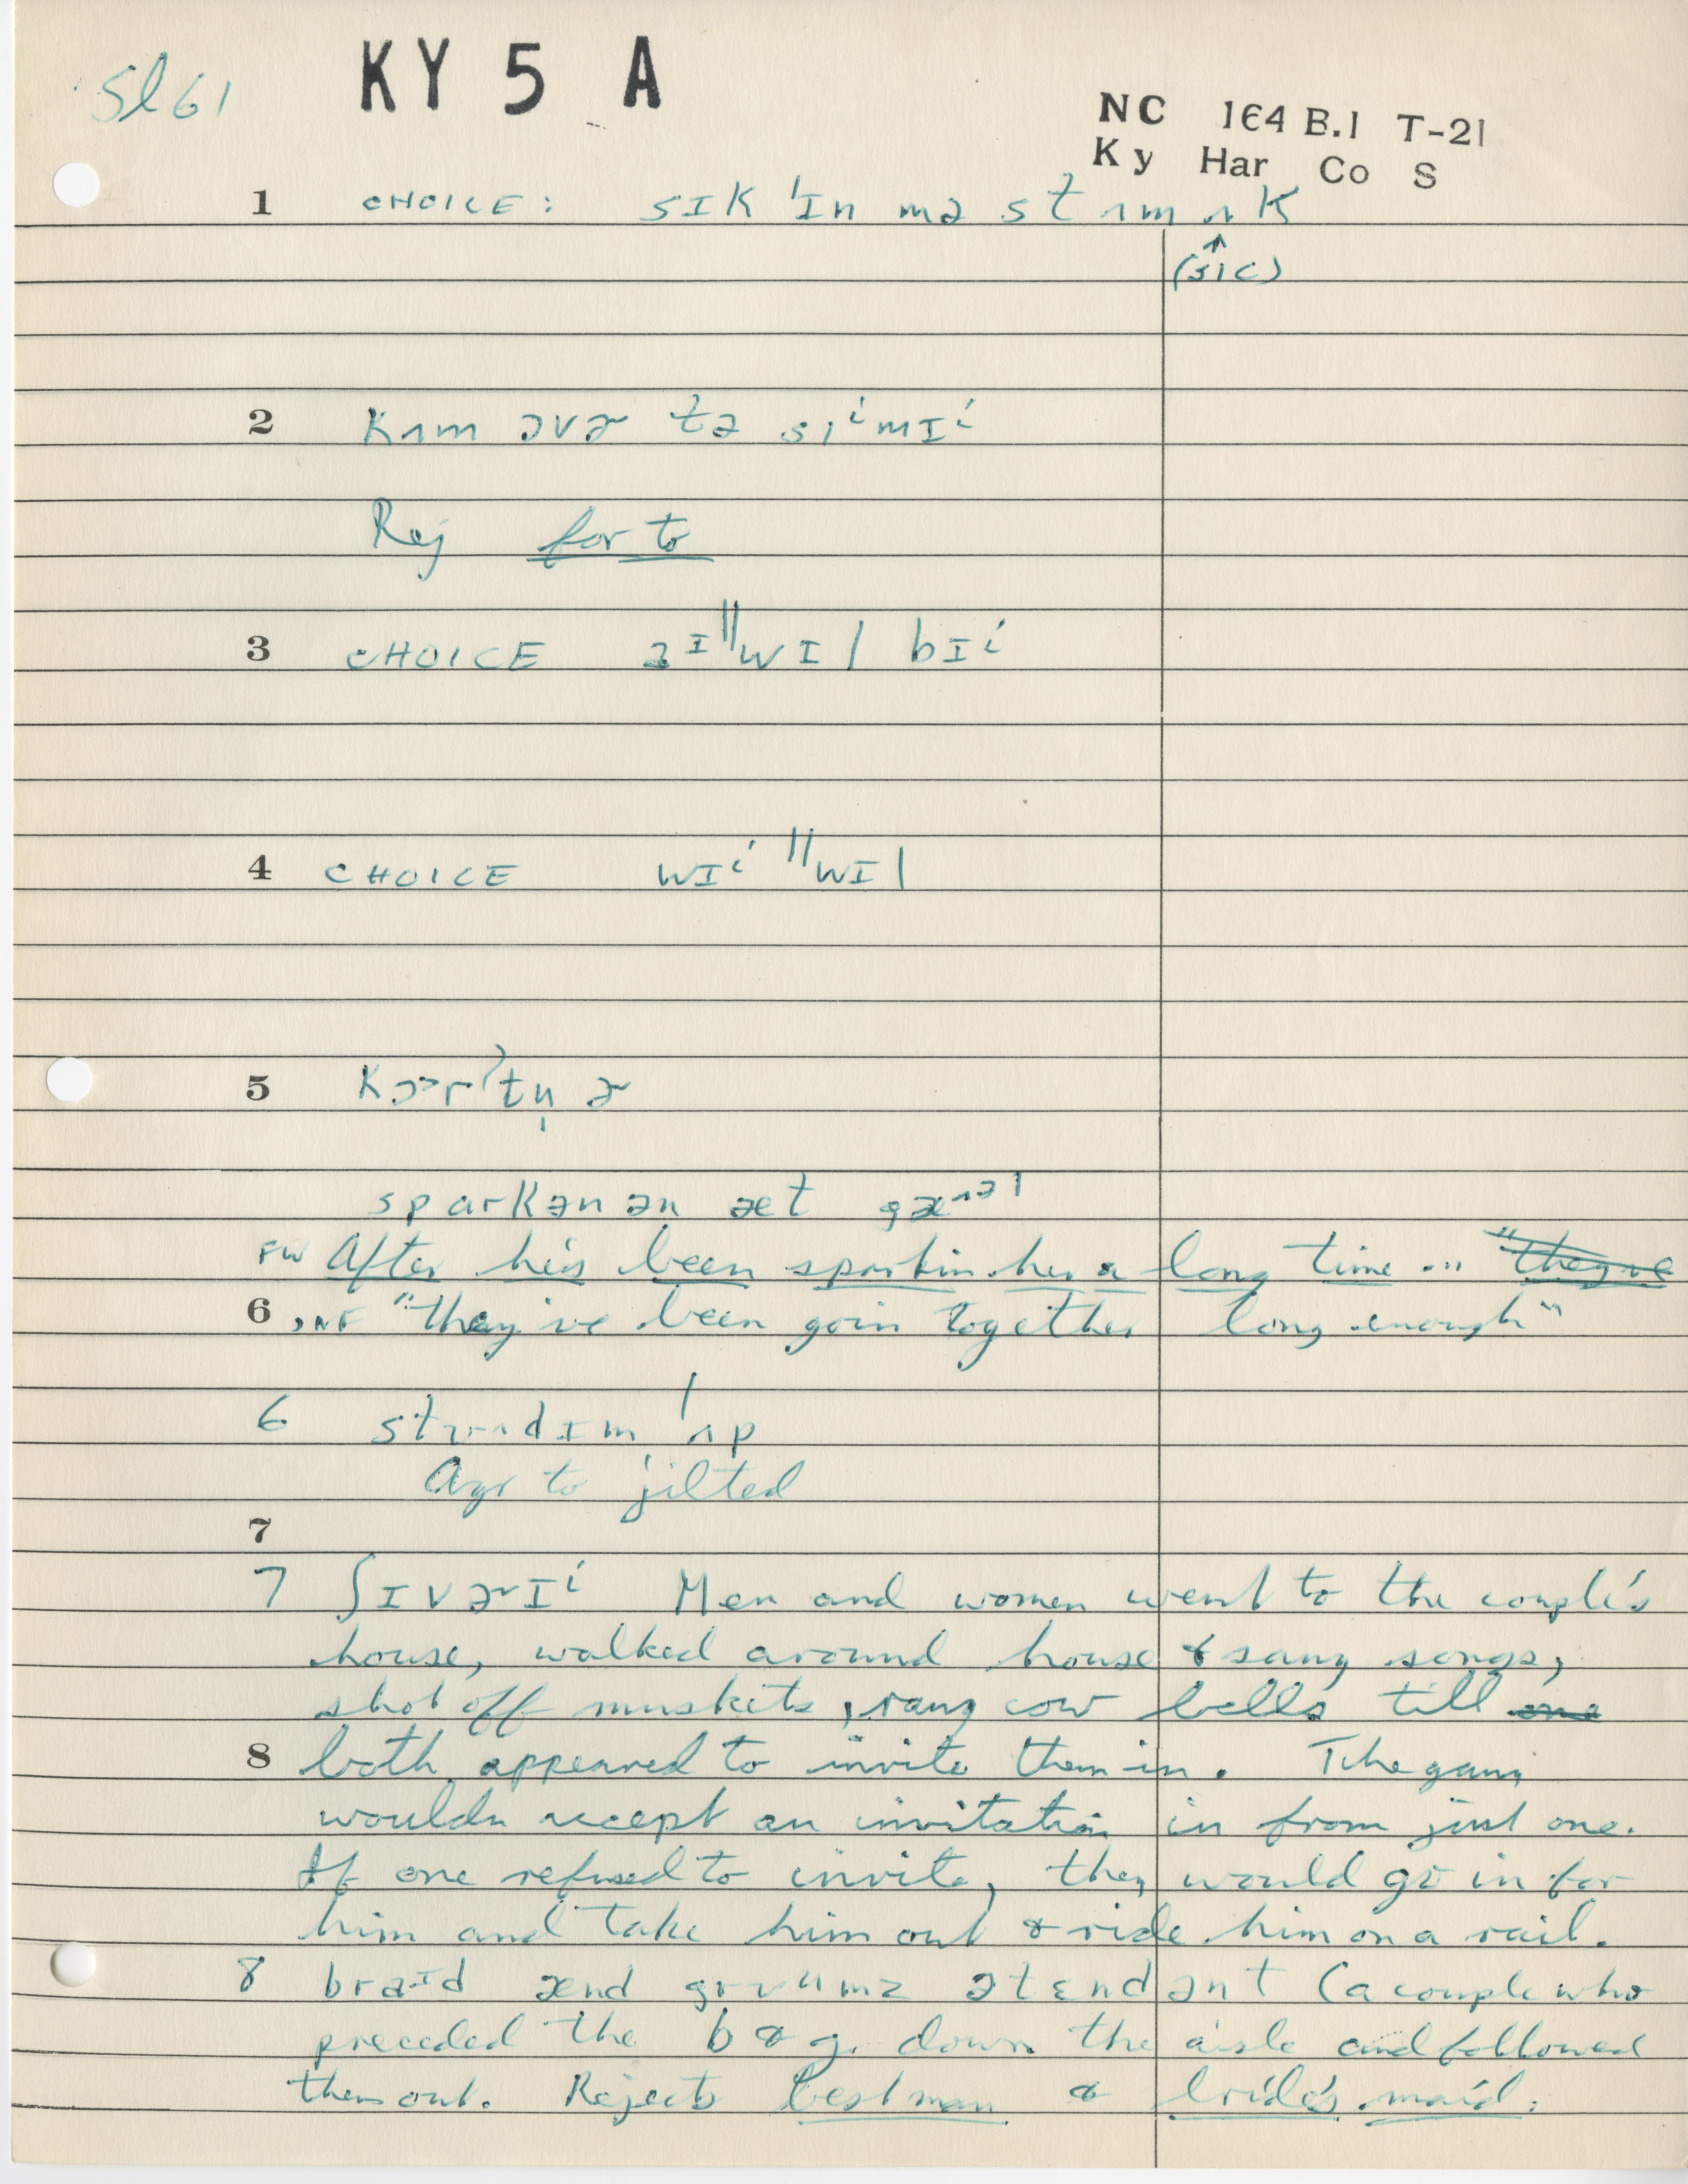 Sl 61 KY 5 A
NC 1E4 B.1 T-21
Ky Har Co S
1 CHOICE: sɪk 'ɪn mə stʌmʌk
(sic)
2 kʌm əvɚ tə siⁱmɪⁱ
Rej for to
3 CHOICE aᴵ"wɪl bɪⁱ
4 CHOICE wɪⁱ "wɪl
5
sparkən ən æt gæ
FW After he's been sparkin her a long time ... "they've
6 "they've been goin together long enough"
6 ʌp
Agr to jilted
7
7 ʃɪvɚɪⁱ Men and women went to the couple's
house, walked around house & sang songs,
shot off muskets, rang cow bells till one
8 both appeared to invite them in. The gang
wouldn accept an invitation in from just one.
If one refused to invite, they would go in for
him and take him out & ride him on a rail.
8 braɪd ænd grᴜᵘmz ətɛndənt (a couple who
preceded the b & g. down the aisle and followed
them out. Rejects best man & bride's maid.